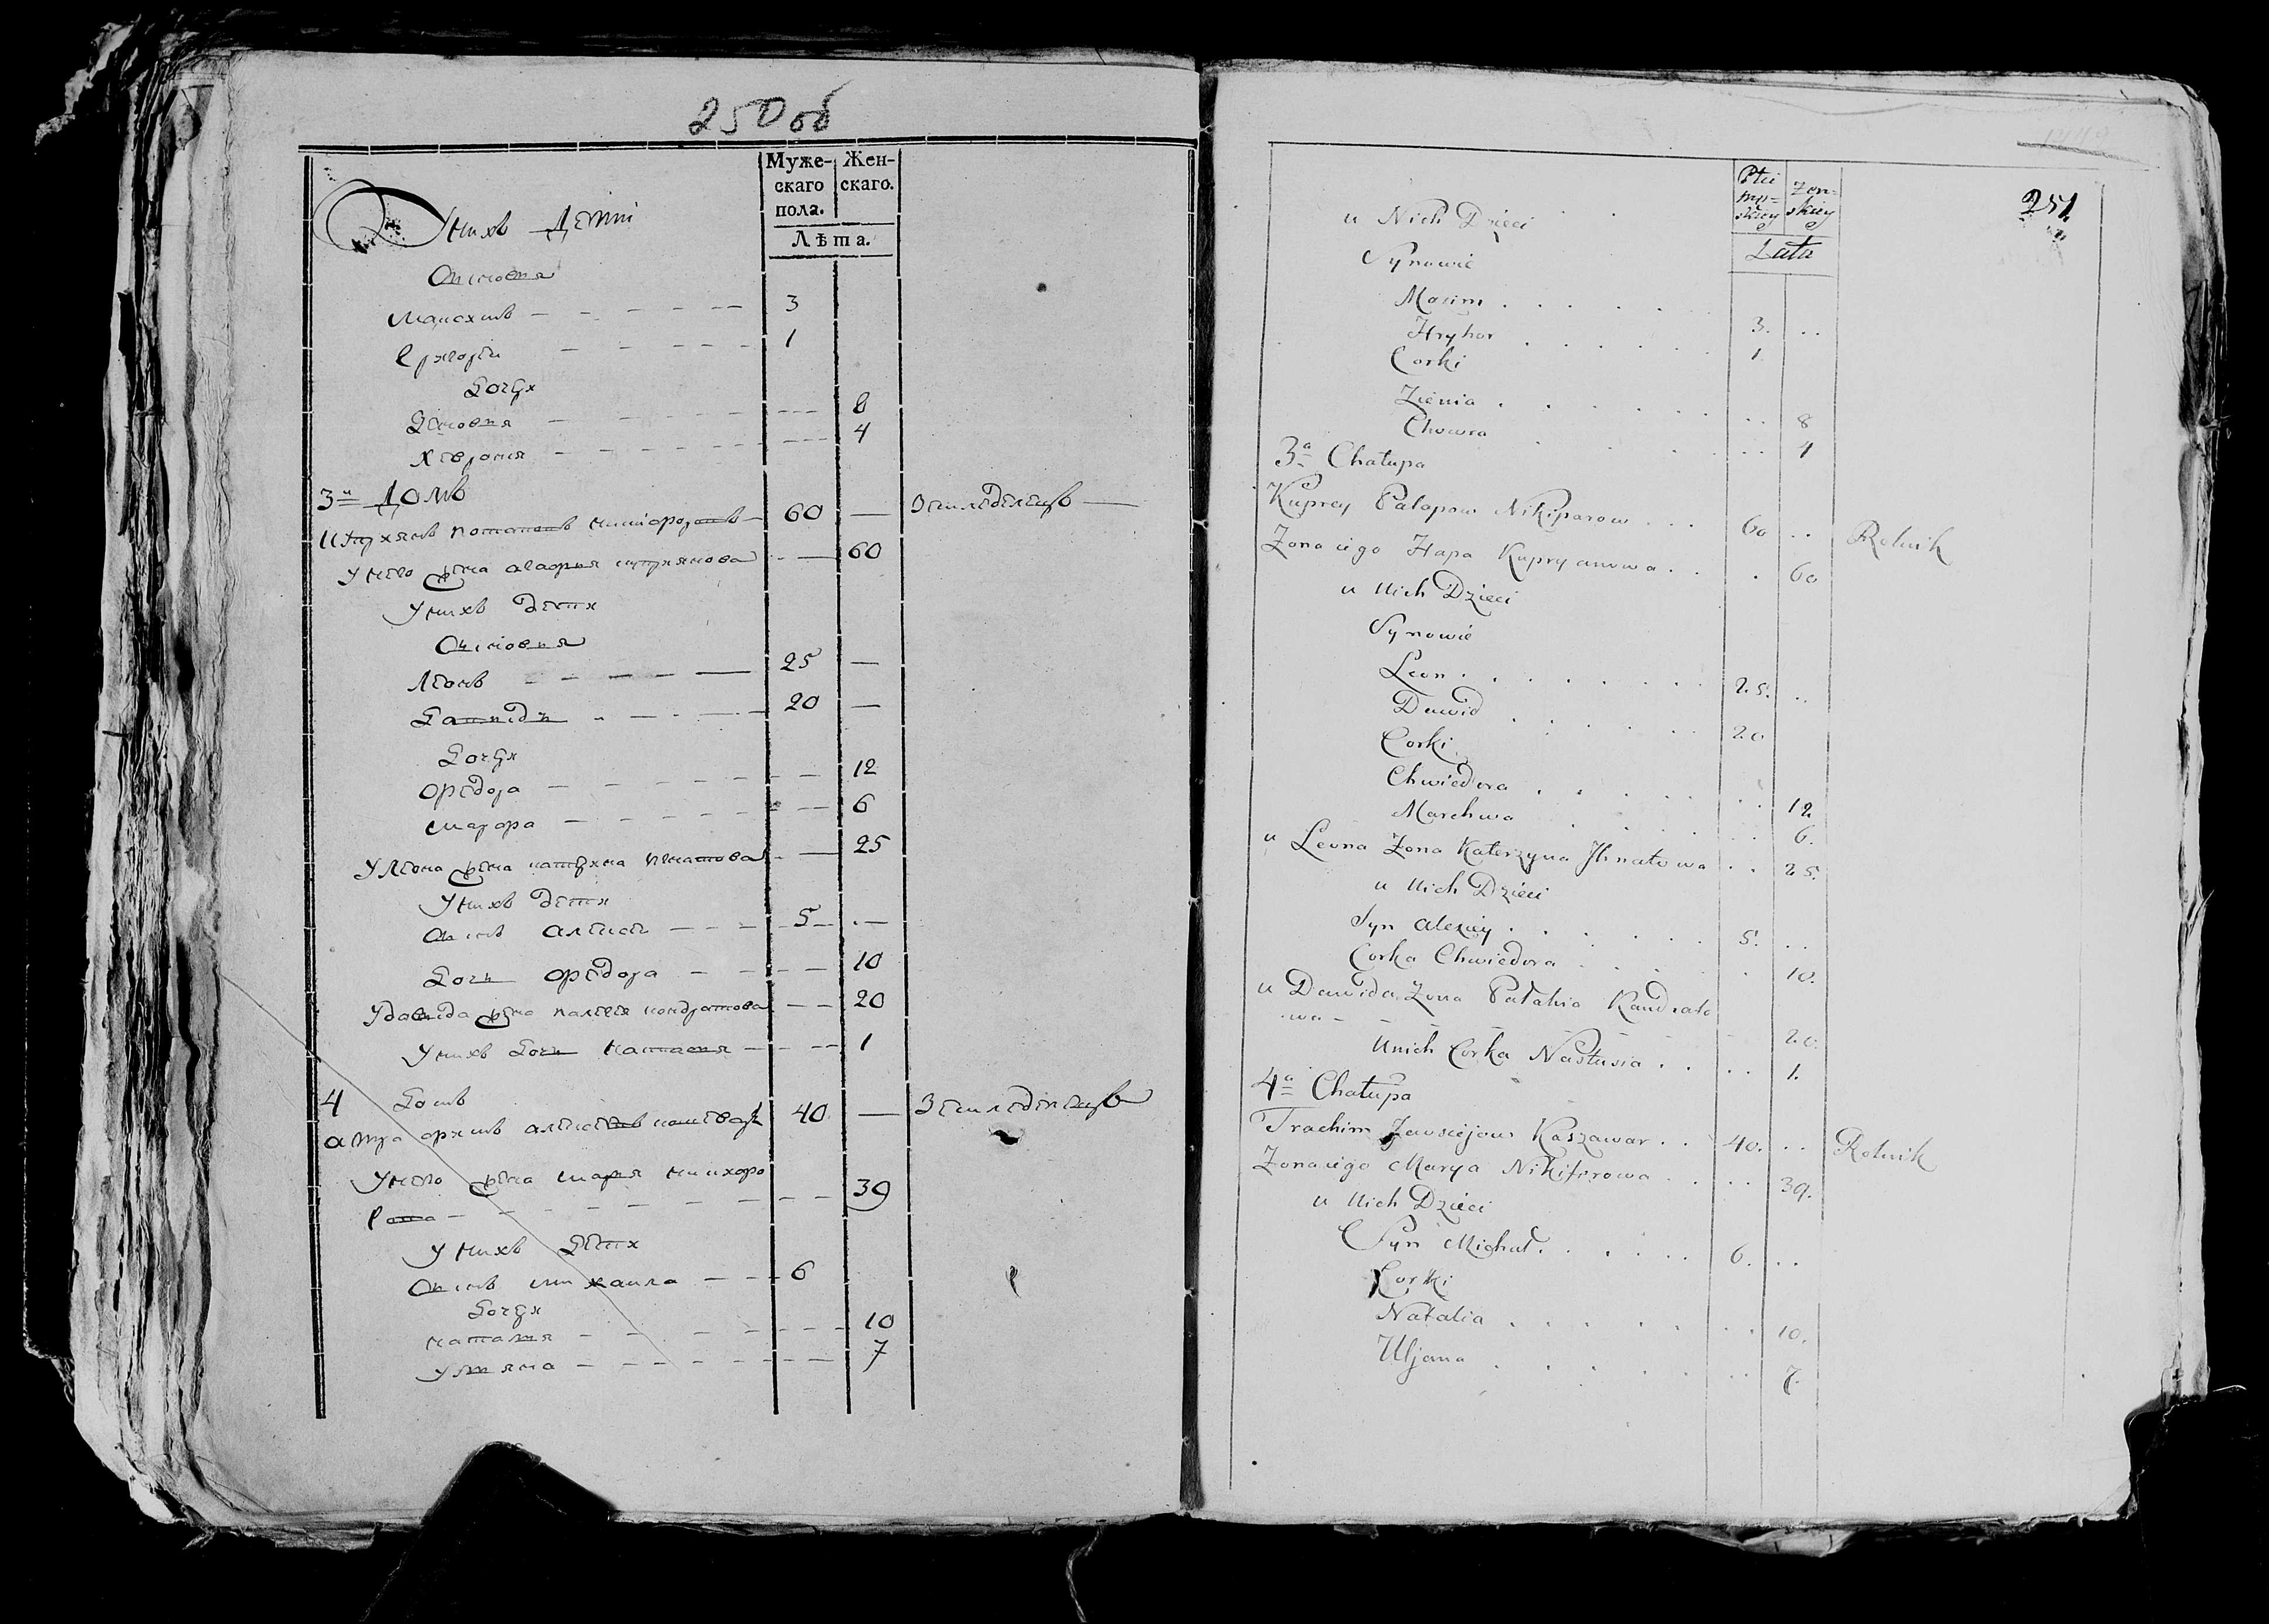 250 об
Муже- Жен-
скаго скаго.
пола.
Лѣта.
Унихъ Дети
Сыновья
Максимъ 3
Григорей 1
Дочери
Зеновья 8
Хеврония 4
3й Домъ
Куприянъ Потаповъ Никифоровъ 60 Земледелецъ
Унего жена Агафия Куприянова 60
Унихъ дети
Сыновья
Леонъ 25
Давидъ 20
Дочери
Фведора 12
Марфа 6
У Леона жена Катерина Игнатова 25
Унихъ дети
Сынъ Алексей 5
Дочь Фведора 10
Удавида жена Палагея Кондратова 20
Унихъ Дочь Настасия 1
4 Домъ
Трофимъ 40 Земледелецъ
Унего жена Мария Никифо
рова 39
Унихъ Дети
Сынъ Михаила 6
Дочери
Наталия 10
Ульяна 7
251
Płci Żeń=
mę= skiey
skiey
Lata
u Nich Dzieci
Synowie
Maxim 3.
Hryhor 1
Corki
Zienia 8
Chowra 4
3a Chałupa
Kuprey Patapow Nikiparow 60 Rolnik
Zona iego Hapa Kupryanowa 60
u Nich Dzieci
Synowie
Leon 25.
Dawid 20
Corki
Chwiedora 12
Marchwa 6.
u Leona Zona Katerzyna Ihnatowa 25.
u Nich Dzieci
Syn Alexiey 5.
Corka Chwiedora 10.
u Dawida Zona Pałahia Kandrato
wa 20.
Unich Corka Nastusia 1.
4a Chałupa
Trachim Kaszawar 40. Rolnik
Zona iego Marya Nikifirowa 39.
u Nich Dzieci
Syn Michał 6.
Corki
Natalia 10.
Uljana 7.